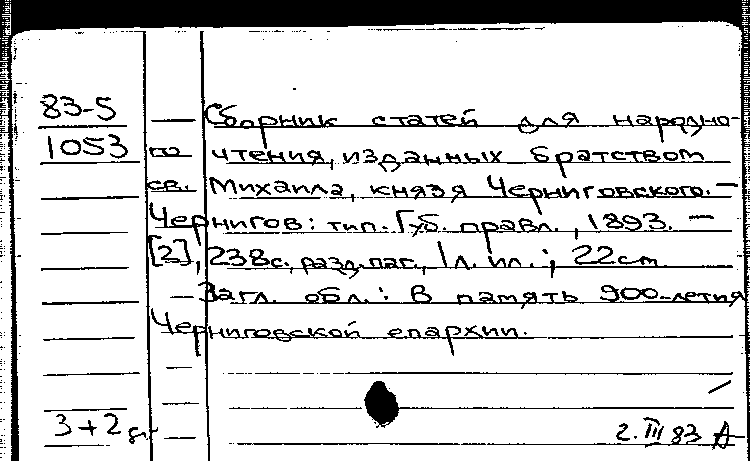 83-5 Сборник статей для народно-
1053 го чтения, изданных Братством
св. Михаила, князя Черниговского. —
Чернигов: тип. Губ. правл., 1893. —
[2], 238с., разд. паг., 1л. ил.; 22см
— Загл. обл.: В память 900-летия
Черниговской епархии.
3+2
2. III 83